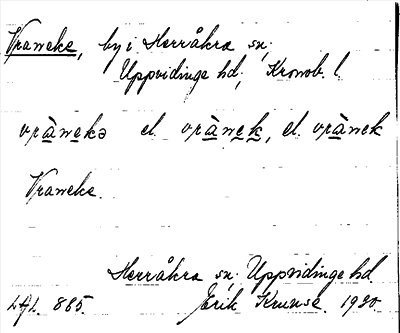 Vraneke, by i Herråkra sn;
Uppvidinge hd; Kronob. l.
vrànekə el. vrànek, el. vrànek
Vraneke.
Herråkra sn; Uppvidinge hd.
885. Erik Kruuse. 1930.